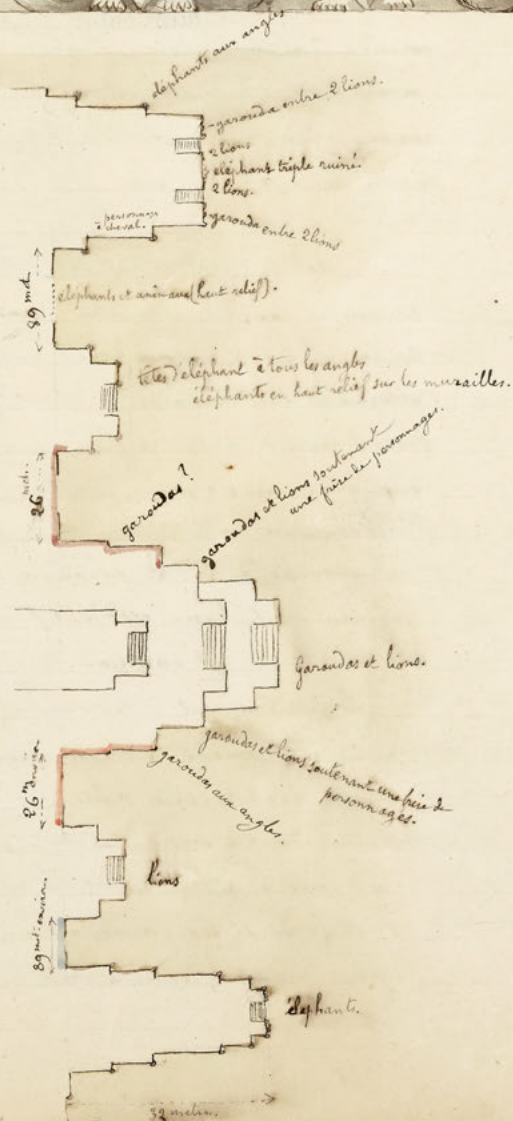 éléphants aux angles.
garouda entre 2 lions.
2 lions
éléphant triple ruiné.
2 lions.
garouda entre 2 lions
personnage
à cheval.
89 mèt.
éléphants et animaux (haut relief).
têtes d'éléphant à tous les angles
éléphants en haut relief sur les murailles.
26 mèt.
garoudas?
garoudas et lions soutenant
une frise de personnages.
Garoudas et lions.
garoudas et lions soutenant une frise de
personnages.
garoudas aux angles.
26 m environ
lions
89 mèt. environ.
éléphants.
32 mètres.